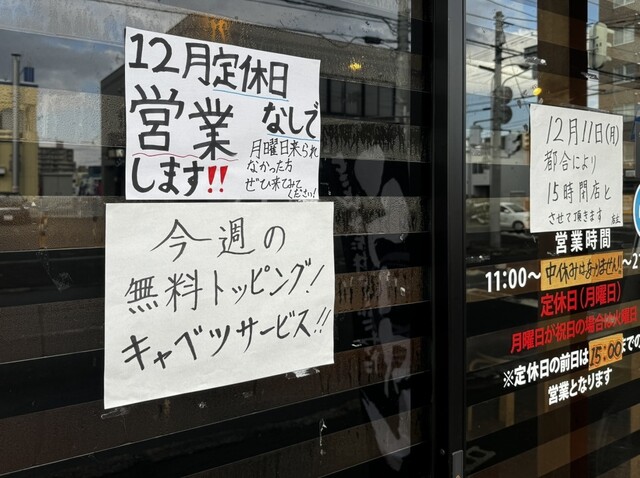 12月定休日
なしで
営業
します!!
月曜日来られ
なかった方
ぜひ来てみて
ください!
今週の
無料トッピング!
キャベツサービス!!
12月11日(月)
都合により
15時閉店と
させて頂きます
店主
営業時間
11:00〜中休みはありません!〜2
定休日(月曜日)
月曜日が祝日の場合は火曜日
※定休日の前日は15:00までの
営業となります